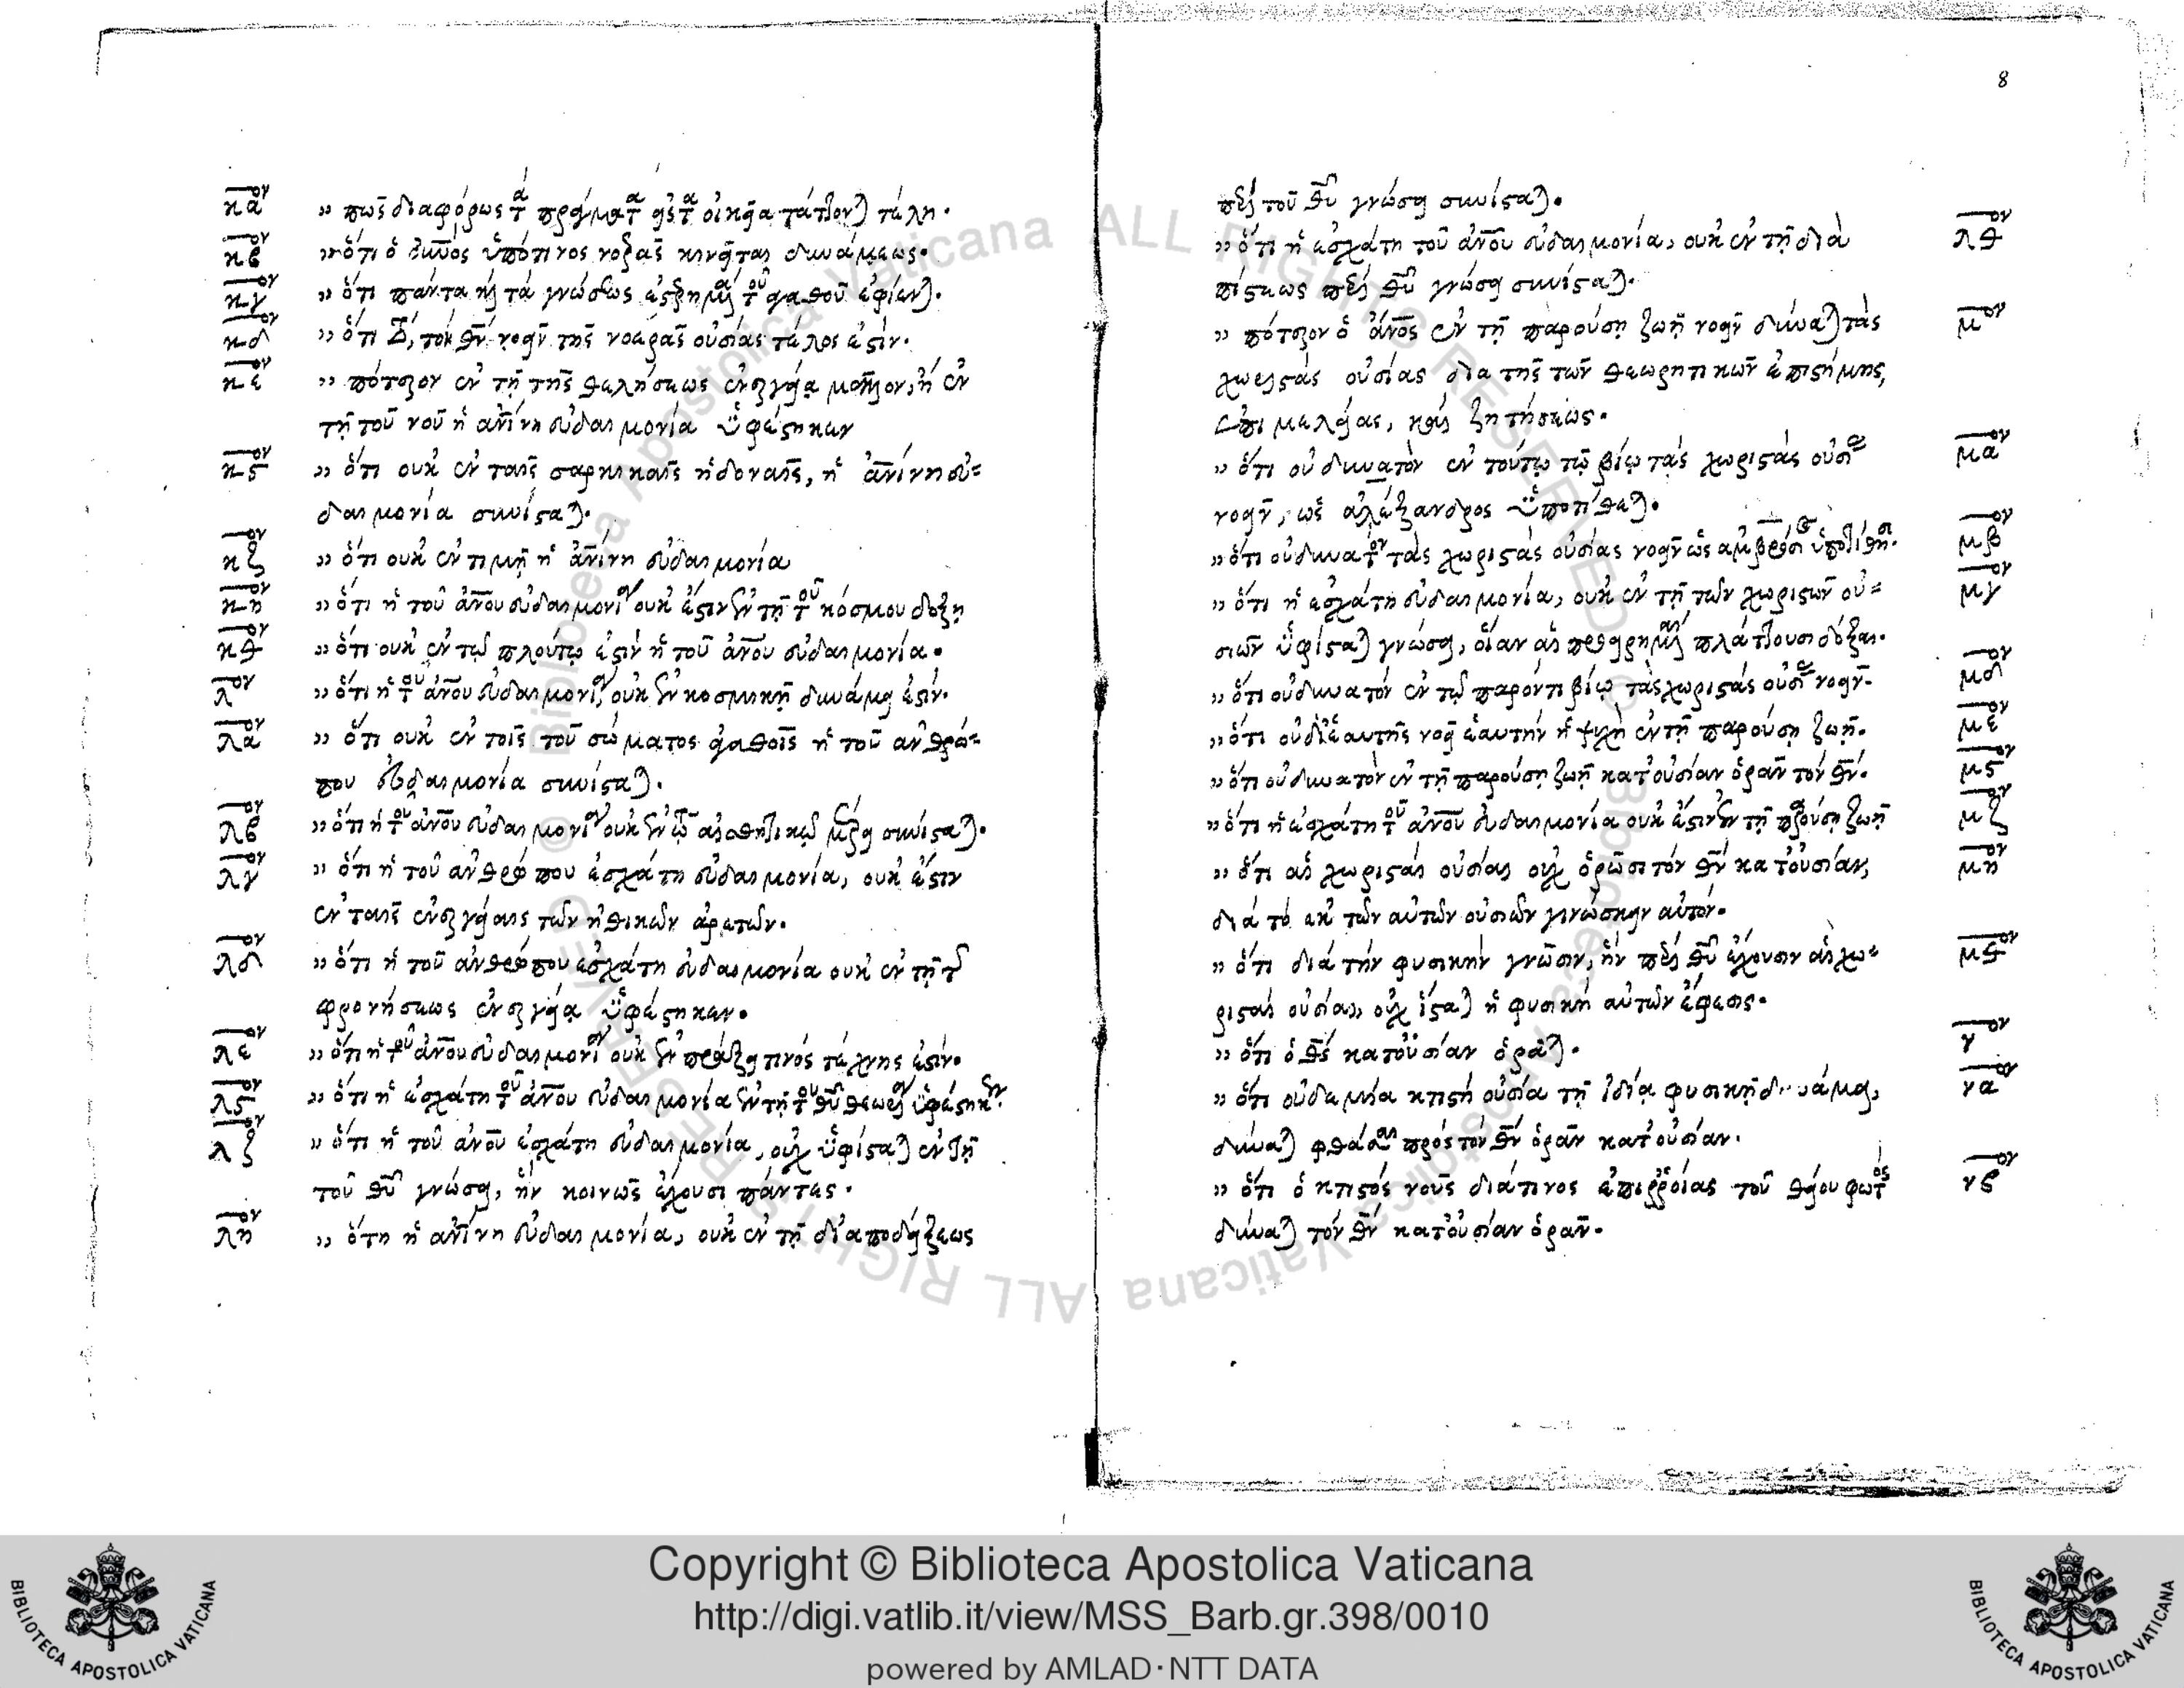 κα^ον » πῶς διαφόρως τὰ πράγματα εἰς τὰ οἰκεῖα τάττονται τέλη.
κβ^ον » ὅτι ὁ νοῦς ὑπό τινος νοερᾶς κινεῖται δυνάμεως.
κγ^ον » ὅτι πάντα καὶ τὰ γνώσεως ἐστερημένα τοῦ ἀγαθοῦ ἐφίεται.
κδ^ον » ὅτι τὸν θν νοεῖν τῆς νοερᾶς οὐσίας τέλος ἐστίν.
κε^ον » πότερον ἐν τῇ τῆς θελήσεως ἐνεργείᾳ μᾶλλον, ἢ ἐν
τῇ τοῦ νοῦ ἡ ανίνη εὐδαιμονία ὑφέστηκεν
κς^ον » ὅτι οὐκ ἐν ταῖς σαρκικαῖς ἡδοναῖς, ἡ ανίνη εὐ=
δαιμονία συνίσταται.
κζ^ον » ὅτι οὐκ ἐν τιμῇ ἡ ανίνη εὐδαιμονία
κη^ον » ὅτι ἡ τοῦ ανου εὐδαιμονία οὐκ ἔστιν ἐν τῇ τοῦ κόσμου δόξῃ
κθ^ον » ὅτι οὐκ ἐν τῷ πλούτῳ ἐστὶν ἡ τοῦ ανου εὐδαιμονία.
λ^ον » ὅτι ἡ τοῦ ανου εὐδαιμονία, οὐκ ἐν κοσμικῇ δυνάμει ἐστίν.
λα^ον » ὅτι οὐκ ἐν τοῖς τοῦ σώματος ἀγαθοῖς ἡ τοῦ ανθρώ=
που εὐδαιμονία συνίσταται.
λβ^ον » ὅτι ἡ τοῦ ανου εὐδαιμονία οὐκ ἐν τῷ αἰσθητικῷ μέρει συνίσταται.
λγ^ον » ὅτι ἡ τοῦ ανθρώπου ἐσχάτη εὐδαιμονία, οὐκ ἔστιν
ἐν ταῖς ἐνεργείαις τῶν ἠθικῶν ἀρετῶν.
λδ^ον » ὅτι ἡ τοῦ ανθρώπου ἐσχάτη εὐδαιμονία οὐκ ἐν τῇ τῆς
φρονήσεως ἐνεργείᾳ ὑφέστηκεν.
λε^ον » ὅτι ἡ τοῦ ανου εὐδαιμονία οὐκ ἐν πράξει τινὸς τέχνης ἐστίν.
λς^ον » ὅτι ἡ ἐσχάτη τοῦ ανου εὐδαιμονία ἐν τῇ τοῦ θυ θεωρίᾳ ὑφέστηκεν.
λζ^ον » ὅτι ἡ τοῦ ανου ἐσχάτη εὐδαιμονία, οὐχ ὑφίσταται ἐν τῇ
τοῦ θυ γνώσει, ἣν κοινῶς ἔχουσι πάντες.
λη^ον » ὅτι ἡ ανίνη εὐδαιμονία, οὐκ ἐν τῇ δι' ἀποδείξεως
8
περὶ τοῦ θυ γνώσει συνίσταται.
» ὅτι ἡ ἐσχάτη τοῦ ανου εὐδαιμονία, οὐκ ἐν τῇ διὰ λθ^ον
πίστεως περὶ θυ γνώσει συνίσταται.
» πότερον ὁ ανος ἐν τῇ παρούσῃ ζωῇ νοεῖν δύναται τὰς μ^ον
χωριστὰς οὐσίας διὰ τῆς τῶν θεωρητικῶν ἐπιστήμης,
ἐπιμελείας, καὶ ζητήσεως.
» ὅτι οὐ δυνατὸν ἐν τούτῳ τῷ βίῳ τὰς χωριστὰς οὐσίας μα^ον
νοεῖν, ὡς ἀλέξανδρος ὑποτίθεται.
» ὅτι οὐ δυνατὸν τὰς χωριστὰς οὐσίας νοεῖν ὡς ὑποτίθησι. μβ^ον
» ὅτι ἡ ἐσχάτη εὐδαιμονία, οὐκ ἐν τῇ τῶν χωριστῶν οὐ= μγ^ον
σιῶν ὑφίσταται γνώσει, οἵαν αἱ προειρημέναι πλάττουσι δόξαι.
» ὅτι οὐ δυνατὸν ἐν τῷ παρόντι βίῳ τὰς χωριστὰς οὐσίας νοεῖν. μδ^ον
» ὅτι οὐ δι' ἑαυτῆς νοεῖ ἑαυτὴν ἡ ψυχὴ ἐν τῇ παρούσῃ ζωῇ. με^ον
» ὅτι οὐ δυνατὸν ἐν τῇ παρούσῃ ζωῇ κατ' οὐσίαν ὁρᾶν τὸν θν. μς^ον
» ὅτι ἡ ἐσχάτη τοῦ ανου εὐδαιμονία οὐκ ἔστιν ἐν τῇ παρούσῃ ζωῇ μζ^ον
» ὅτι αἱ χωρισταὶ οὐσίαι οὐχ ὁρῶσι τὸν θν κατ' οὐσίαν, μη^ον
διὰ τὸ ἐκ τῶν αὐτῶν οὐσιῶν γινώσκειν αὐτόν.
» ὅτι διὰ τὴν φυσικὴν γνῶσιν, ἣν περὶ θυ ἔχουσιν αἱ χω= μθ^ον
ρισταὶ οὐσίαι, οὐχ ἵσταται ἡ φυσικὴ αὐτῶν ἔφεσις.
» ὅτι ὁ θς κατ' οὐσίαν ὁρᾶται. ν^ον
» ὅτι οὐδεμία κτιστὴ οὐσία τῇ ἰδίᾳ φυσικῇ δυνάμει, να^ον
δύναται φθάσαι πρὸς τὸν θν ὁρᾶν κατ' οὐσίαν.
» ὅτι ὁ κτιστὸς νοῦς διά τινος ἐπιρροίας τοῦ θείου φωτὸς νβ^ον
δύναται τὸν θν κατ' οὐσίαν ὁρᾶν.
© Biblioteca Apostolica Vaticana ALL RIGHTS RESERVED
Copyright © Biblioteca Apostolica Vaticana
http://digi.vatlib.it/view/MSS_Barb.gr.398/0010
powered by AMLAD·NTT DATA
BIBLIOTECA APOSTOLICA VATICANA
BIBLIOTECA APOSTOLICA VATICANA